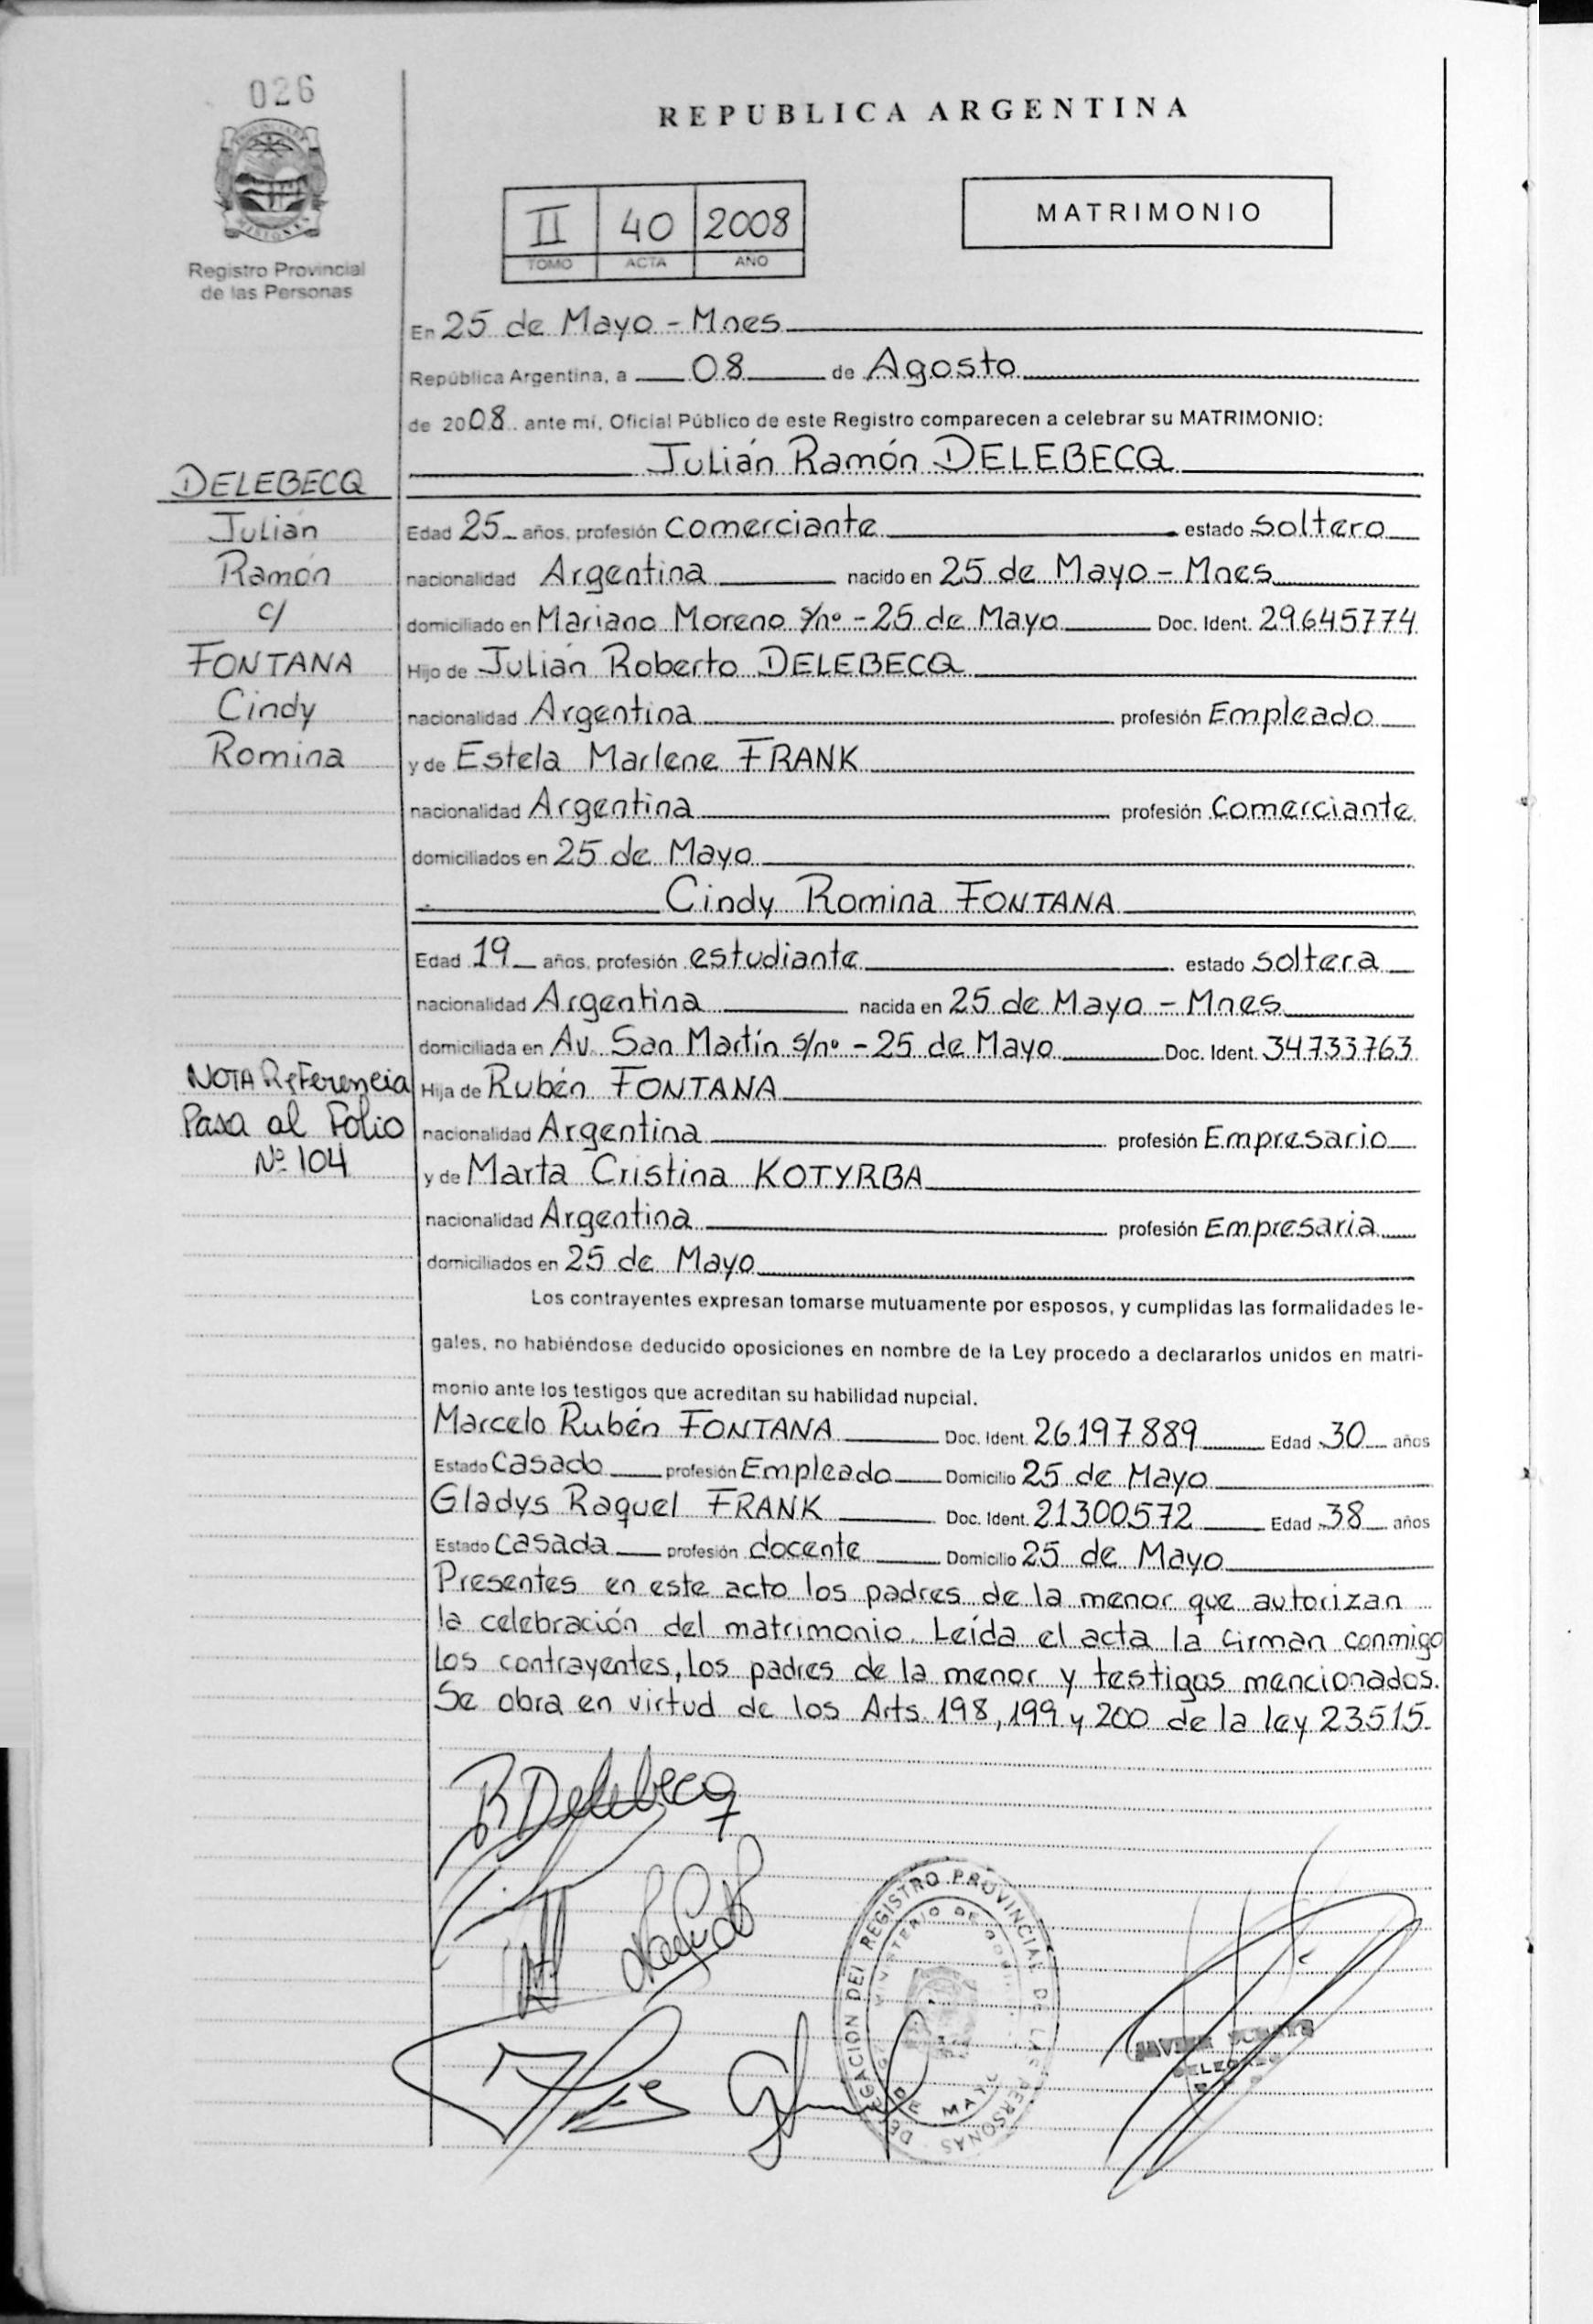 026
REPUBLICA ARGENTINA
PROVINCIA DE
MISIONES
Registro Provincial
de las Personas
II 40 2008
TOMO ACTA AÑO
MATRIMONIO
En 25 de Mayo - Mnes
República Argentina, a 08 de Agosto
de 2008. ante mí, Oficial Público de este Registro comparecen a celebrar su MATRIMONIO:
Julián Ramón DELEBECQ
DELEBECQ
Julián
Ramón
c/
FONTANA
Cindy
Romina
Edad 25 años, profesión comerciante estado soltero
nacionalidad Argentina nacido en 25 de Mayo - Mnes
domiciliado en Mariano Moreno s/nº - 25 de Mayo Doc. Ident. 29645774
Hijo de Julián Roberto DELEBECQ
nacionalidad Argentina profesión Empleado
y de Estela Marlene FRANK
nacionalidad Argentina profesión Comerciante
domiciliados en 25 de Mayo
Cindy Romina FONTANA
Edad 19 años, profesión estudiante estado soltera
nacionalidad Argentina nacida en 25 de Mayo - Mnes
domiciliada en Av. San Martín s/nº - 25 de Mayo Doc. Ident. 34733763
NOTA Referencia
Pasa al Folio
Nº 104
Hija de Rubén FONTANA
nacionalidad Argentina profesión Empresario
y de Marta Cristina KOTYRBA
nacionalidad Argentina profesión Empresaria
domiciliados en 25 de Mayo
Los contrayentes expresan tomarse mutuamente por esposos, y cumplidas las formalidades le-
gales, no habiéndose deducido oposiciones en nombre de la Ley procedo a declararlos unidos en matri-
monio ante los testigos que acreditan su habilidad nupcial.
Marcelo Rubén FONTANA Doc. Ident. 26197889 Edad 30 años
Estado Casado profesión Empleado Domicilio 25 de Mayo
Gladys Raquel FRANK Doc. Ident. 21300572 Edad 38 años
Estado Casada profesión docente Domicilio 25 de Mayo
Presentes en este acto los padres de la menor que autorizan
la celebración del matrimonio. Leída el acta la firman conmigo
los contrayentes, los padres de la menor y testigos mencionados.
Se obra en virtud de los Arts. 198, 199 y 200 de la ley 23515.
R Delebecq
DELEGACION DEL REGISTRO PROVINCIAL DE LAS PERSONAS
MINISTERIO DE
DE MAYO